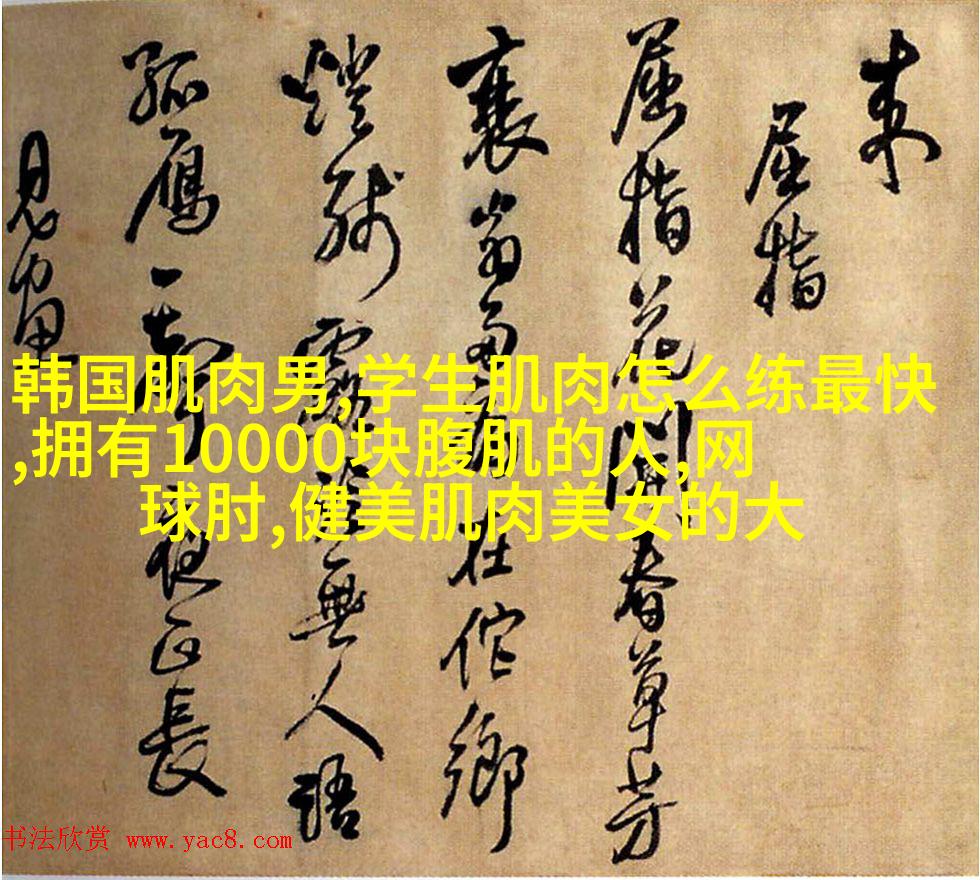 屈指
屈指花開春草芳
衰翁多在佗鄉
燈殘無人語
孤雁一聲夜正長
韩国肌肉男,学生肌肉怎么练最快
,拥有10000块腹肌的人,网
球肘,健美肌肉美女的大
书法欣赏 www.yac8.com